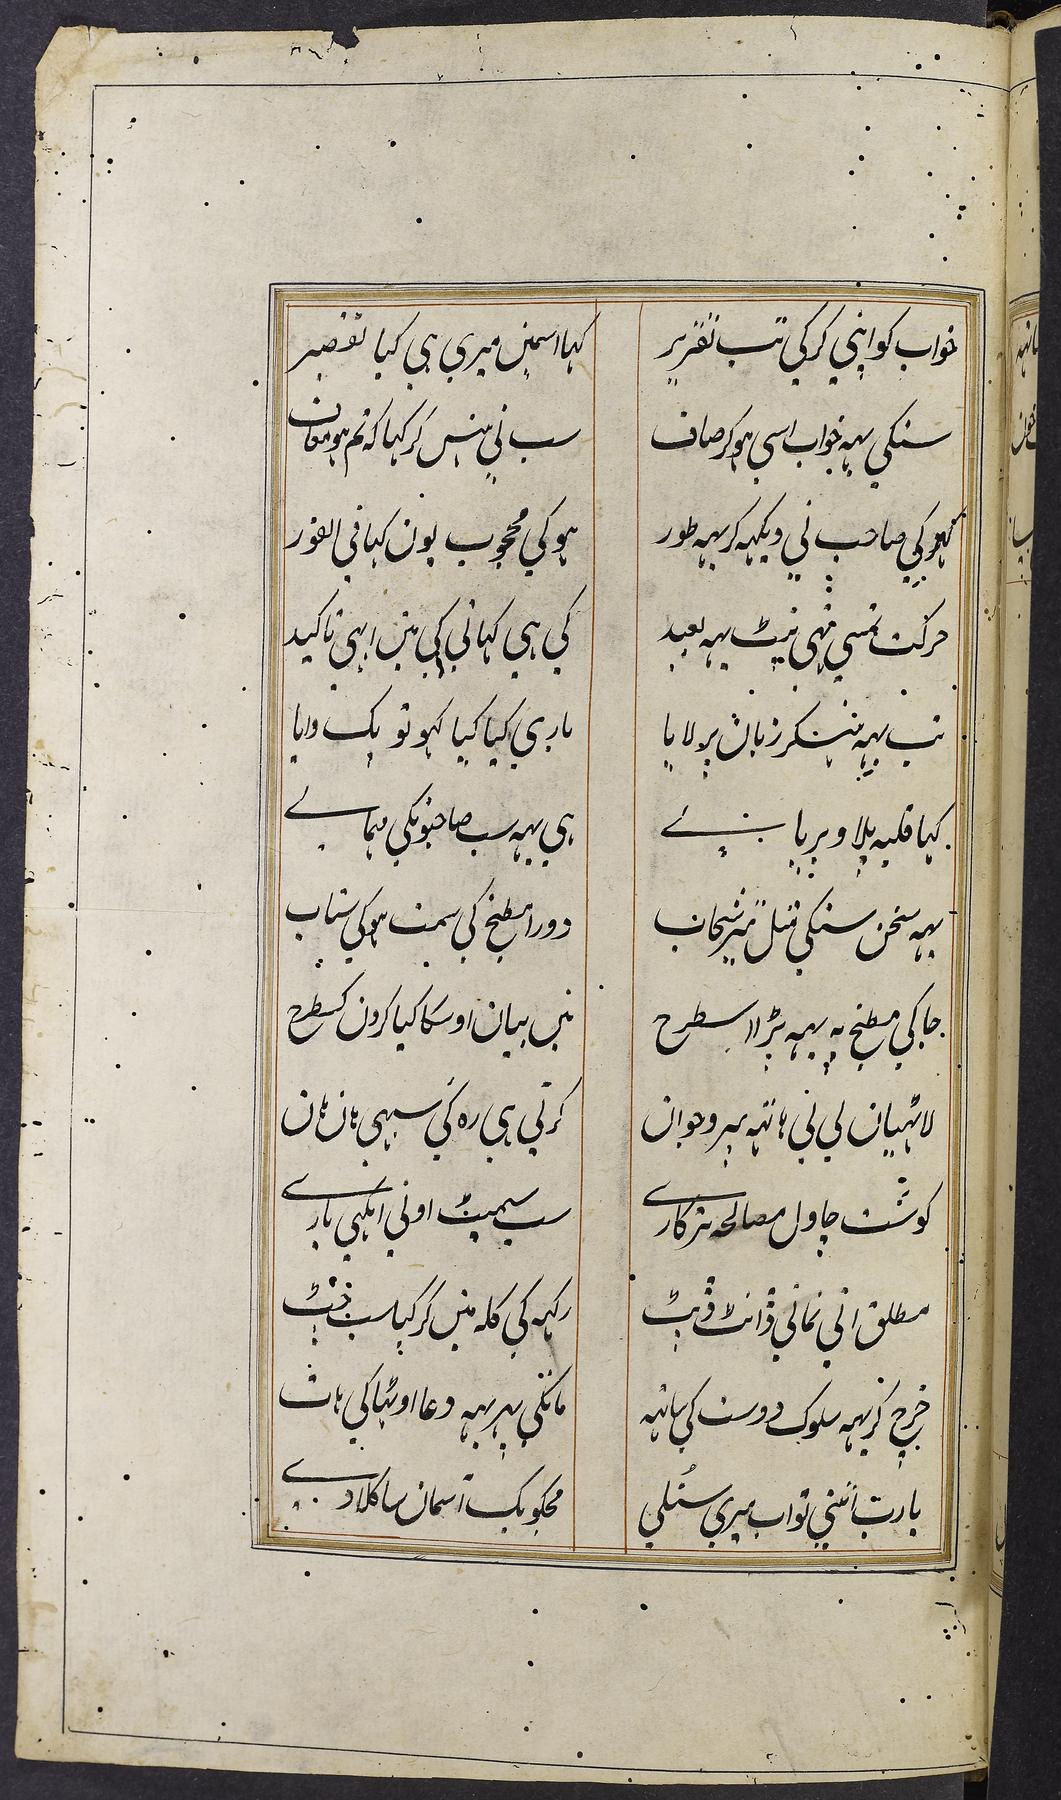 خواب کو اپنی کرکی تب تقریر کہا اسمین میری ہی کیا تقصیر
سنکی یہہ خواب اسی ہوکر صاف سب نی ہنس کر کہا کہ تم ہو معاف
کی صاحب نی دیکہہ کر یہہ طور ہوکی محجوب یون کہا فی الفور
حرکت تمسی تہی نپٹ یہہ بعید کی ہی کہانی کی مین ابہی تاکید
تب یہہ ہنسکر زبان پر لایا باری کیا کیا کہو تو پک وایا
کہا قلیہ پلاو بریانے ہی یہہ سب صاحبونکی مہمانے
یہہ سخن سنکی مثل تیر شہاب دورا مطبخ کی سمت ہوکی شتاب
جاکی مطبخ پہ یہہ پڑا اسطرح مین بیان اوسکا کیا کرون کسطرح
لاٹہیان لی لی ہاتہہ پیر و جوان کرتی ہی رہ کی سبہی ہان ہان
کوشت چاول مصالحہ ترکارے سب سمیٹ اونی ایکہی بارے
مطلق انی نمانی ڈانٹ ڈپٹ رکہہ کی کلہ مین کر کیا سب چٹ
خرچ کر یہہ سلوک دوست کی ساتہہ مانکی پہر یہہ دعا اوٹہاکی ہات
یارب اتنی تو اب میری سنلی مجکو یک آسمان سا کلا دے